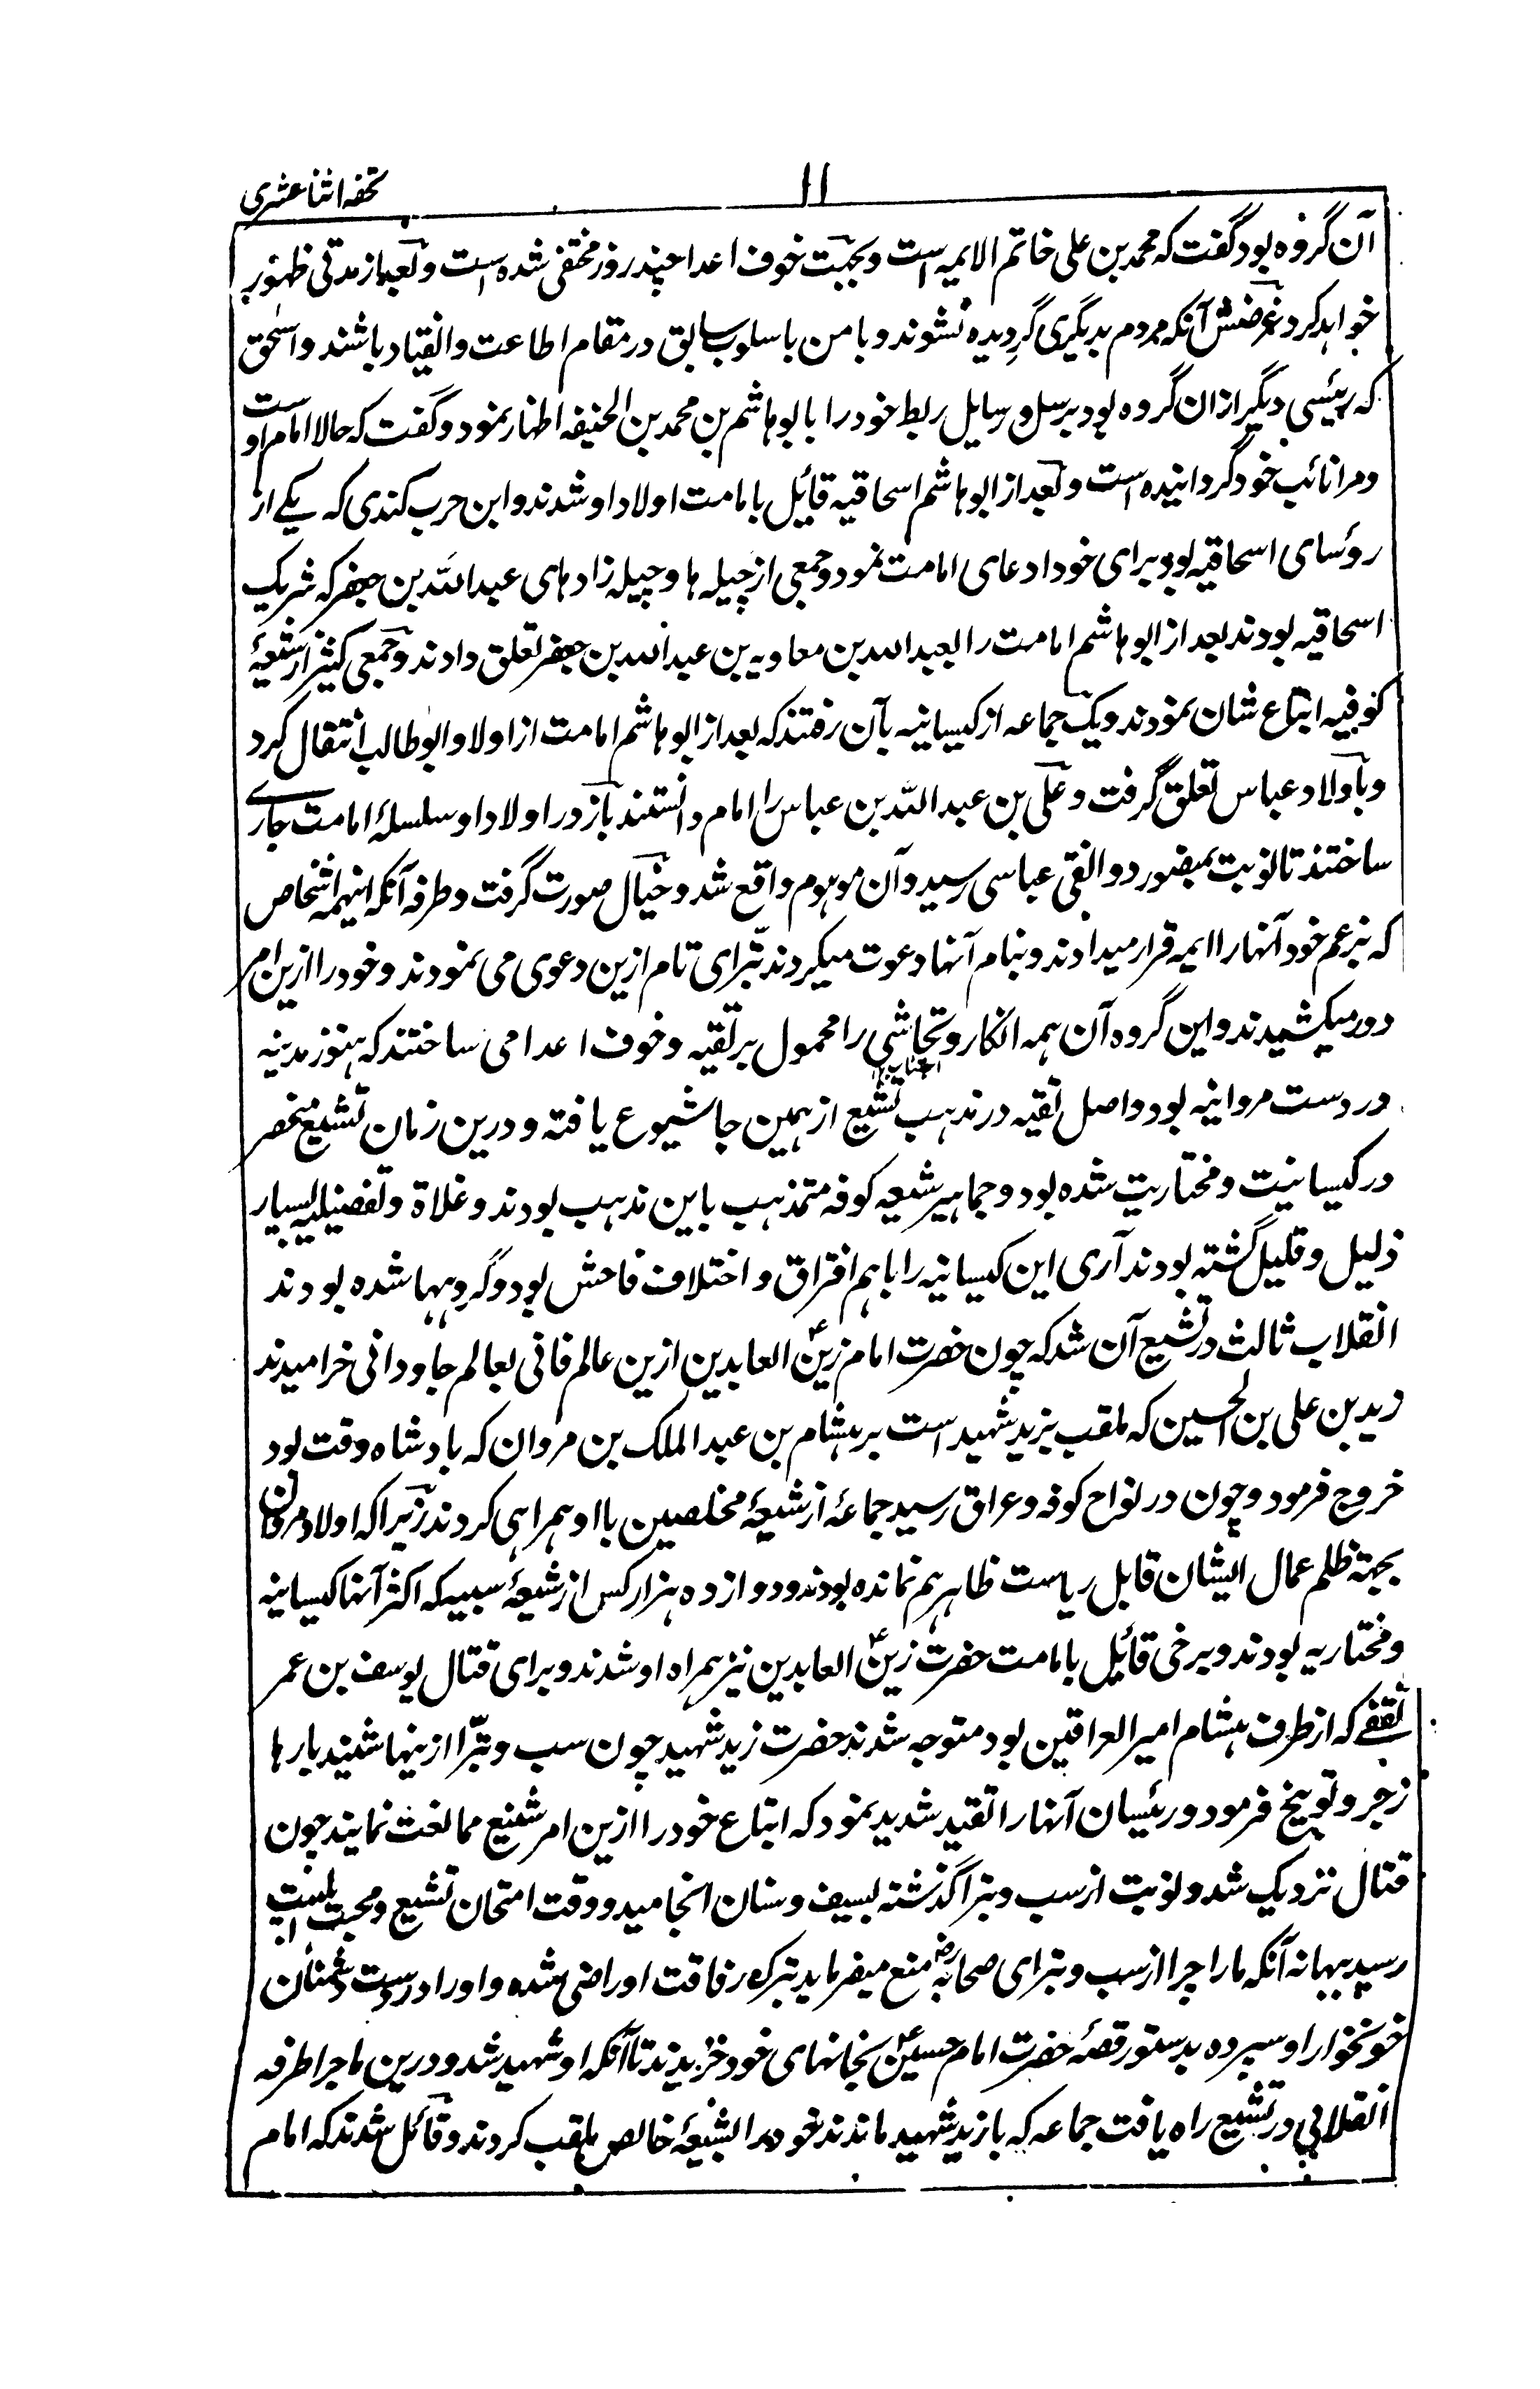 تحفه اثنا عشری
۱۱
آن گروه بود گفت که محمد بن علی خاتم الایمه است و بجهت خوف اعدا چند روز مختفی شده است و بعد از مدتی ظهور
خواهد کرد غرضش آنکه مردم بدیگری گردیده نشوند و با من باسلوب سابق در مقام اطاعت و انقیاد باشند و اسحق
که رئیسی دیگر از ان گروه بود برسل و رسایل ربط خود را با ابو هاشم بن محمد بن الحنفیه اظهار نمود و گفت که حالا امام او ست
و مرا نائب خود گردانیده است و بعد از ابو هاشم اسحاقیه قائل بامامت اولاد او شدند و ابن حرب کندی که یکے از
روسای اسحاقیه بود برای خود ادعای امامت نمود و جمعی از چیله ها و چیله زادهای عبد الله بن جعفر که شریک
اسحاقیه بودند بعد از ابو هاشم امامت را بعبد الله بن معاویه بن عبد الله بن جعفر تعلق دادند و جمعی کثیر از شیعۀ
کوفیه اتباع شان نمودند و یک جماعه از کیسانیه بآن رفتند که بعد از ابو هاشم امامت از اولاد ابو طالب انتقال کرد
و بآولاد عباس تعلق گرفت و علی بن عبد الله بن عباس را امام دانستند باز در اولاد او سلسلۀ امامت جارے
ساختند تا نوبت بمنصور دوانقی عباسی رسید و آن موهوم واقع شد و خیال صورت گرفت و طرفه آنکه اینهمه اشخاص
که بزعم خود آنها را ایمه قرار میدادند و بنام آنها دعوت میکردند تبرّای تام ازین دعوی می نمودند و خود را ازین امر
دور میکشیدند و این گروه آن همه انکار و تحاشی را محمول بر تقیه و خوف اعدا می ساختند که هنوز مدینه
در دست مروانیه بود و اصل تقیه در مذهب تشیع از همین جا شیوع یافته و درین زمان تشیع منحصر
در کیسانیت و مختاریت شده بود و جماهیر شیعه کوفه متمذهب باین مذهب بودند و غلاة و تفضیلیه بسیار
ذلیل و قلیل گشته بودند آری این کیسانیه را با هم افتراق و اختلاف فاحش بود و گروهها شده بودند
انقلاب ثالث در تشیع آن شد که چون حضرت امام زین العابدین ازین عالم فانی بعالم جاودانی خرامیدند
زید بن علی بن الحسین که ملقب بزید شهید است بر هشام بن عبد الملک بن مروان که بادشاه وقت بود
خروج فرمود و چون در نواح کوفه و عراق رسید جماعۀ از شیعۀ مخلصین با او همراهی کردند زیرا که اولاد مروان
بجهة ظلم عمال ایشان قابل ریاست ظاهر هم نمانده بودند و دوازده هزار کس از شیعۀ سبیه که اکثر آنها کیسانیه
و مختاریه بودند و برخی قائیل بامامت حضرت زین العابدین نیز همراه او شدند و برای قتال یوسف بن عمر
ثقفے که از طرف هشام امیر العراقین بود متوجه شدند حضرت زید شهید چون سب و تبرّا ازینها شنید بارها
زجر و توبیخ فرمود و رئیسان آنها را تقید شدید نمود که اتباع خود را ازین امر شنیع ممانعت نمایند چون
قتال نزدیک شد و نوبت از سب و تبرا گذشته بسیف و سنان انجامید و وقت امتحان تشیع و محبت اهلبیت
رسید ببهانه آنکه ما را چرا از سب و تبرای صحابهؓ منع میفرماید بترک رفاقت او راضی شده و او را در دست دشمنان
خونخوار او سپرده بدستور قصۀ حضرت امام حسینؑ بخانهای خود خزیدند تا آنکه او شهید شد و درین ماجرا طرفه
انقلابی در تشیع راه یافت جماعه که با زید شهید ماندند خود را بشیعۀ خالص ملقب کردند و قائل شدند که امام